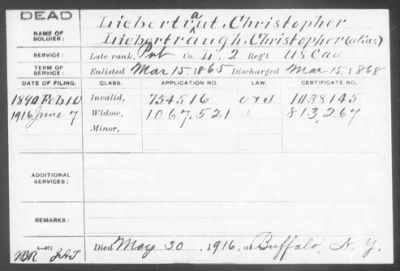 DEAD
NAME OF SOLDIER: Liebertrat, Christopher
a
Liebertraugh, Christopher (alias)
SERVICE: Late rank, Pvt Co. H. 2 Reg't US Cav
TERM OF SERVICE: Enlisted Mar 15, 1865 Discharged Mar. 15, 1868
DATE OF FILING. CLASS. APPLICATION NO. LAW. CERTIFICATE NO.
1890 Feb 10 Invalid, 754516 1038145
1916 June 7 Widow, 1067,521 813,267
Minor,
ADDITIONAL SERVICES:
REMARKS:
Died May 30, 1916, at Buffalo, N.Y.